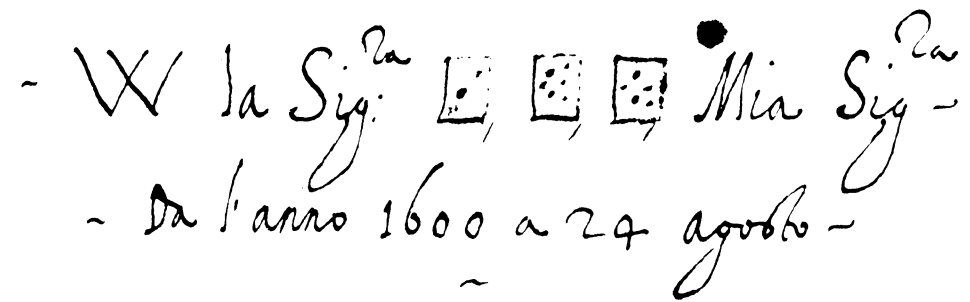 ~ W la Sig:ra , , , Mia Sigra ~
~ Da l'anno 1600 a 24 agosto ~
~